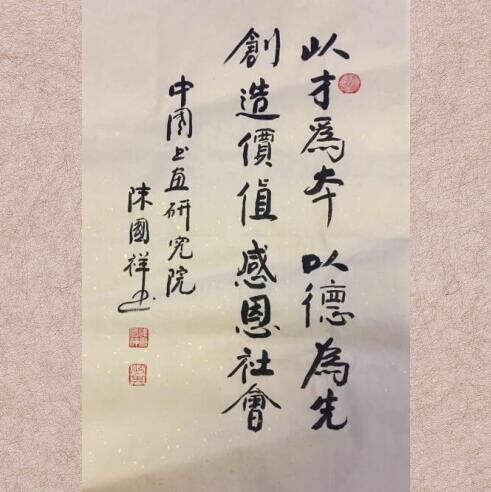 以才為本 以德為先
創造價值 感恩社會
中國书画研究院
陳國祥书